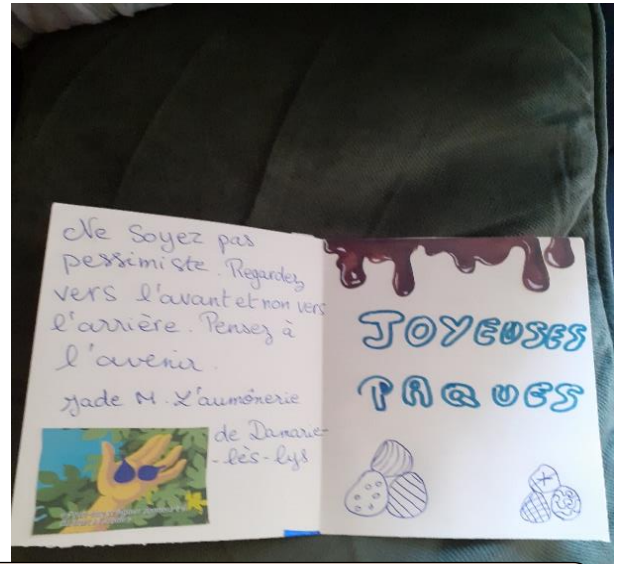 Ne Soyez pas
pessimiste. Regardez
vers l'avant et non vers
l'arrière. Pensez à
l'avenir.
Jade M. L'aumônerie
de Damarie-
-lès-lys
JOYEUSES
PAQUES